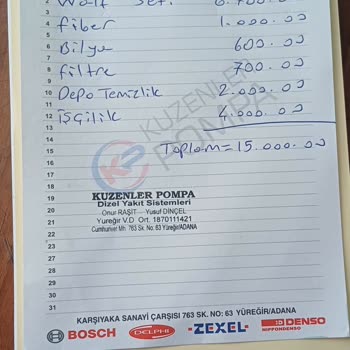 2
4 Fiber 1.000.00
6 Bilye 600.00
8 filtre 700.00
10 Depo Temizlik 2.000.00
12 İşçilik 4.000.00
13
14 Toplam = 15.000.00
15
16
17
18
19
20
21
22
23
24
25
26
27
28
29
30
31
KUZENLER POMPA
KUZENLER POMPA
Dizel Yakıt Sistemleri
Onur RAŞİT - Yusuf DİNÇEL
Yüreğir V.D Ort. 1870111421
Cumhuriyet Mh 763 Sk. No: 63 Yüreğir/ADANA
KARŞIYAKA SANAYİ ÇARŞISI 763 SK. NO: 63 YÜREĞİR/ADANA
BOSCH DELPHI -ZEXEL- DENSO
NIPPONDENSO